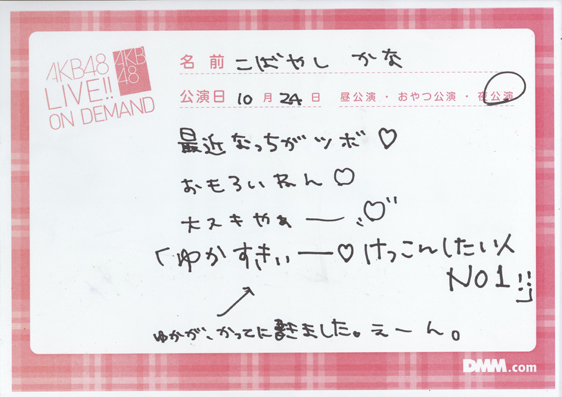 AKB48
LIVE!!
ON DEMAND
AKB
48
名前 こばやし かな
公演日 10月24日 昼公演・おやつ公演・夜公演
最近なっちがツボ♡
おもろいねん♡
大スキやぁー♡
「ゆかすきぃー♡けっこんしたい人
NO1!!」
ゆかが、かってに書きました。えーん。
DMM.com